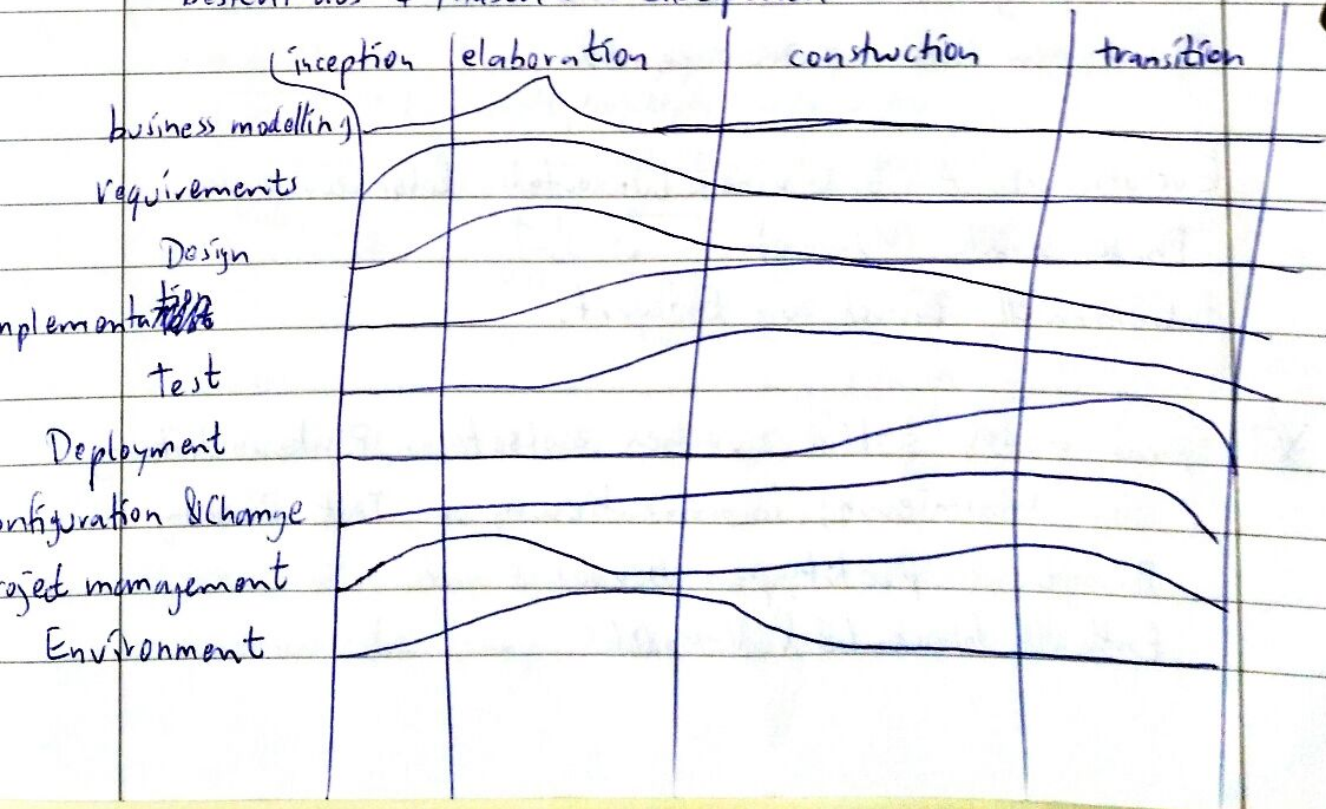 inception elaboration construction transition
business modelling
requirements
Design
mplementation
test
Deployment
onfiguration & Change
roject management
Environment